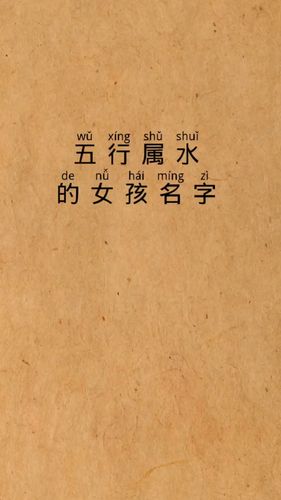 wǔ xíng shǔ shuǐ
五行属水
de nǚ hái míng zì
的女孩名字